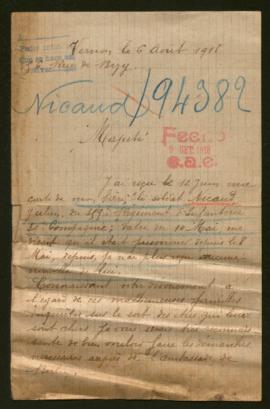 Vernon, le 6 Août 1918
Rue de Bizy
Nicaud / 94382
Majesté
FECHO
9 SET. 1918
e.a.c.
J'ai reçu le 12 Juin une
carte de mon frère, le soldat Nicaud
Julien, du Régiment d'Infanterie
Compagnie; datée du 10 Mai me
disant qu'il était prisonnier depuis le 8
Mai, depuis, je n'ai plus reçu aucune
nouvelle de lui.
Connaissant votre dévouement à
l'égard de ces malheureuses familles
inquiètes sur le sort des êtres qui leur
sont chers je vous serais très reconnais
sante de bien vouloir faire les démarches
nécessaires auprès de l'ambassade de
Berlin